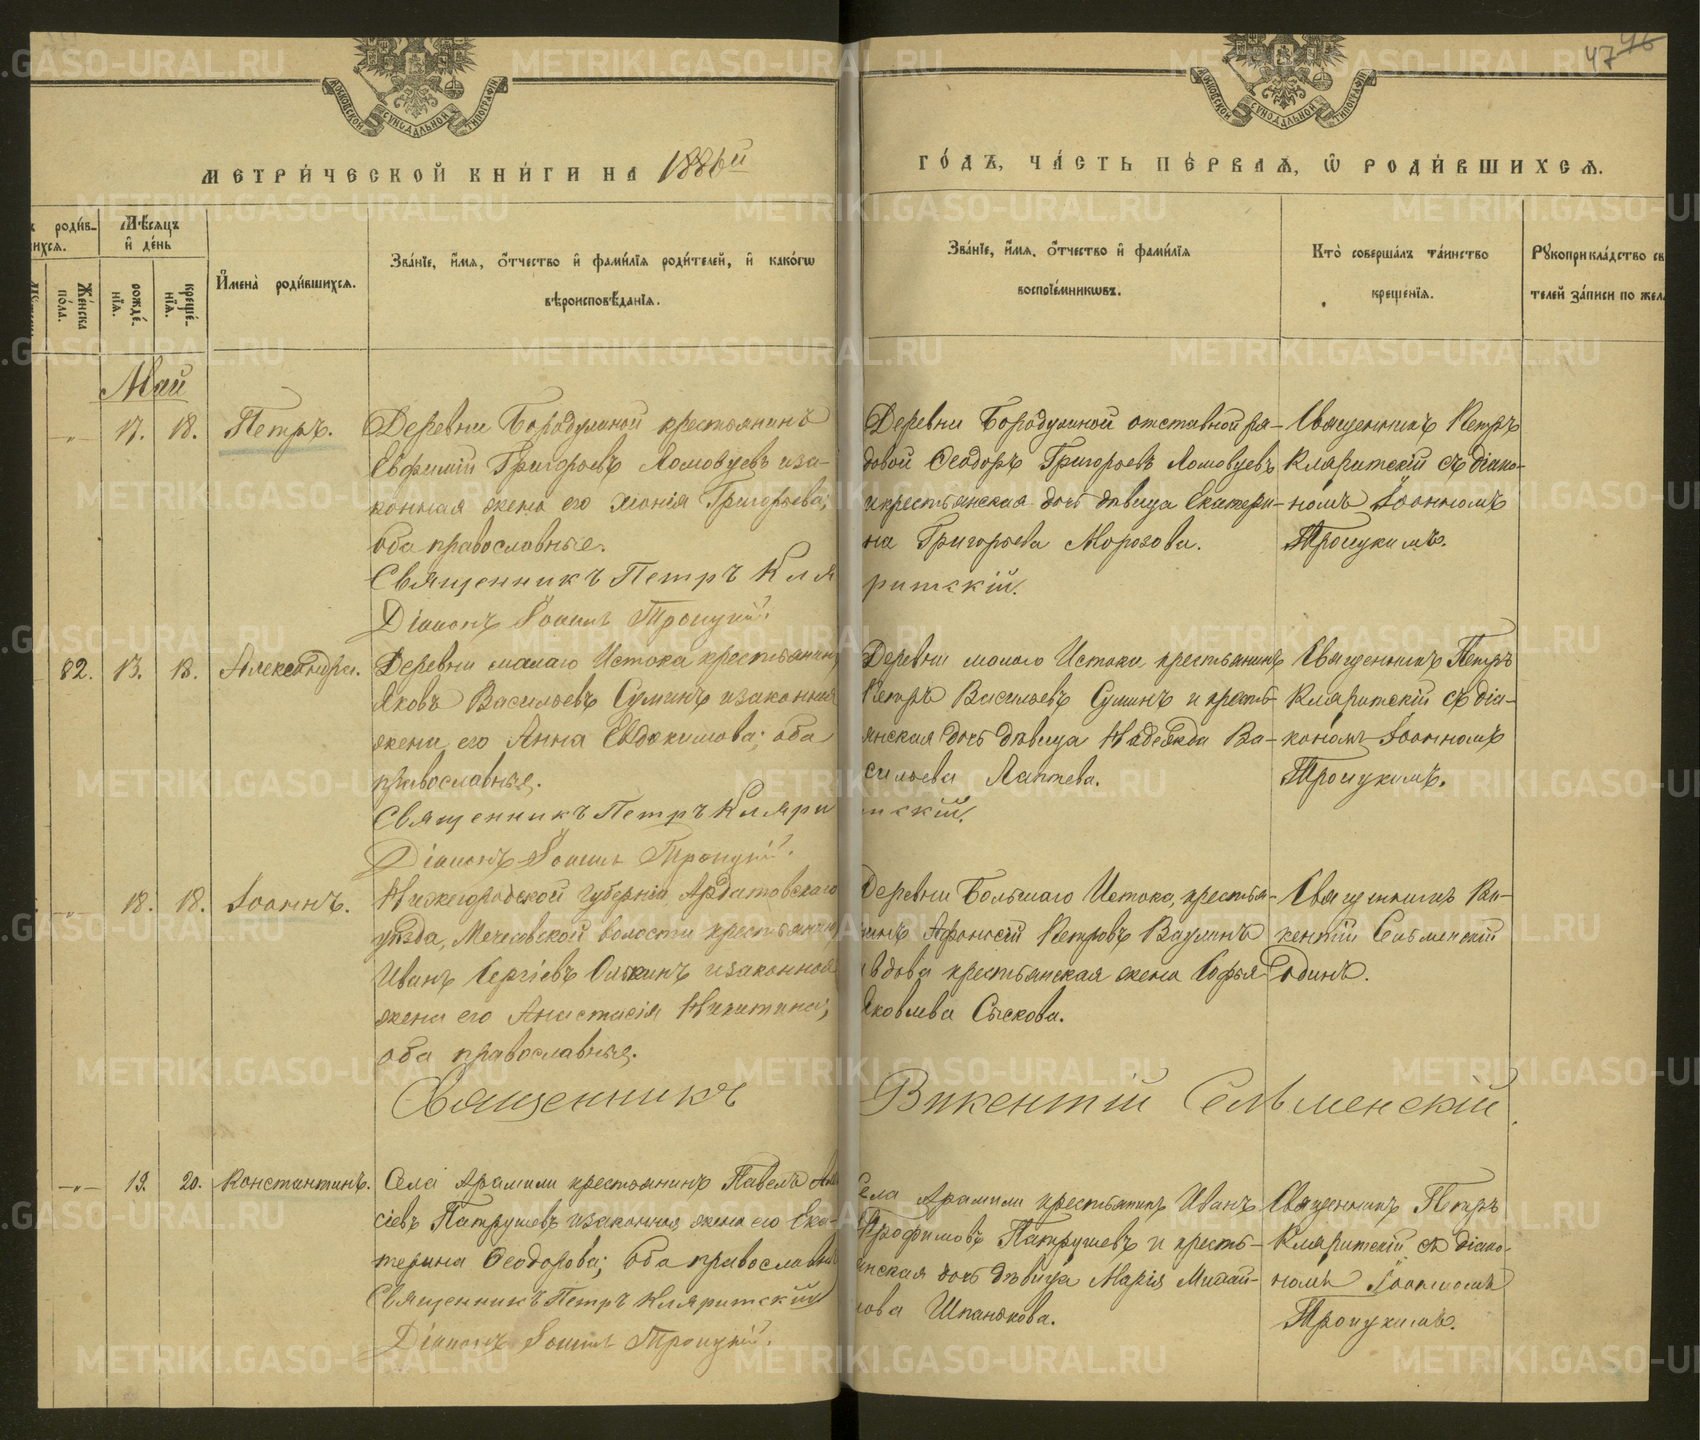 47 46
МОСКОВСКОЙ СѴНОДАЛЬНОЙ ТИПОГРАФІИ
МОСКОВСКОЙ СѴНОДАЛЬНОЙ ТИПОГРАФІИ
МЕТРИ́ЧЕСКОЙ КНИ́ГИ НА 1886й
ГО́ДЪ, ЧА́СТЬ ПЕ́РВАѦ, Ѡ РОДИ́ВШИХСѦ.
роди́в-
ихсѧ.
Мѣ́сѧцъ
и҆ де́нь
Же́нска
по́ла.
рожде́-
нїѧ.
креще́-
нїѧ.
И҆мена̀ роди́вшихсѧ.
Зва́нїе, и҆́мѧ, ѻ҆́тчество и҆ фами́лїѧ роди́телей, и҆ како́гѡ
вѣроисповѣ́данїѧ.
Зва́нїе, и҆́мѧ, ѻ҆́тчество и҆ фами́лїѧ
воспрїе́мникѡвъ.
Кто̀ соверша́лъ та́инство
креще́нїѧ.
Рꙋкоприкла́дство св
телей за́писи по жел
Май
17. 18. Петръ.
Деревни Бородулиной крестьянинъ
Евфимій Григорьевъ Ломовцевъ и за-
конная жена его Хіонія Григорьева;
оба православные.
Священникъ Петръ Кля
Діаконъ Іоаннъ Троицкій.
Деревни Бородулиной отставной ря-
довой Ѳеодоръ Григорьевъ Ломовцевъ
и крестьянская дочь дѣвица Екатери-
на Григорьева Морозова.
ритскій.
Священникъ Петръ
Кляритскій съ діако-
номъ Іоанномъ
Троицкимъ.
82. 13. 18. Александра.
Деревни малаго Истока крестьянинъ
Яковъ Васильевъ Суминъ и законная
жена его Анна Евдокимова; оба
православные.
Священникъ Петръ Кляри
Діаконъ Іоаннъ Троицкій.
Деревни малаго Истока крестьянинъ
Петръ Васильевъ Суминъ и кресть-
янская дочь дѣвица Надежда Ва-
сильева Лаптева.
тскій.
Священникъ Петръ
Кляритскій съ діа-
кономъ Іоанномъ
Троицкимъ.
18. 18. Іоаннъ.
Нижегородской губерніи, Ардатовскаго
уѣзда, Мечасовской волости крестьянинъ
Иванъ Сергіевъ и законная
жена его Анастасія Никитина;
оба православные.
Священникъ
Деревни Большаго Истока, крестья-
нинъ Афонасій Петровъ Ваулинъ
и вдова крестьянская жена Софья
Яковлева Сыскова.
Викентій Сельменскій
Священникъ Ви-
кентій Сельменскій
Одинъ.
19. 20. Константинъ.
Села Арамили крестьянинъ Павелъ
сіевъ Патрушевъ и законная жена его Ека-
терина Ѳеодорова; оба православные
Священникъ Петръ Кляритскій
Діаконъ Іоаннъ Троицкій.
Села Арамили крестьянинъ Иванъ
Трофимовъ Патрушевъ и кресть-
янская дочь дѣвица Марія Михай-
лова Шпанькова.
Священникъ Петръ
Кляритскій съ діако-
номъ Іоанномъ
Троицкимъ.
METRIKI.GASO-URAL.RU